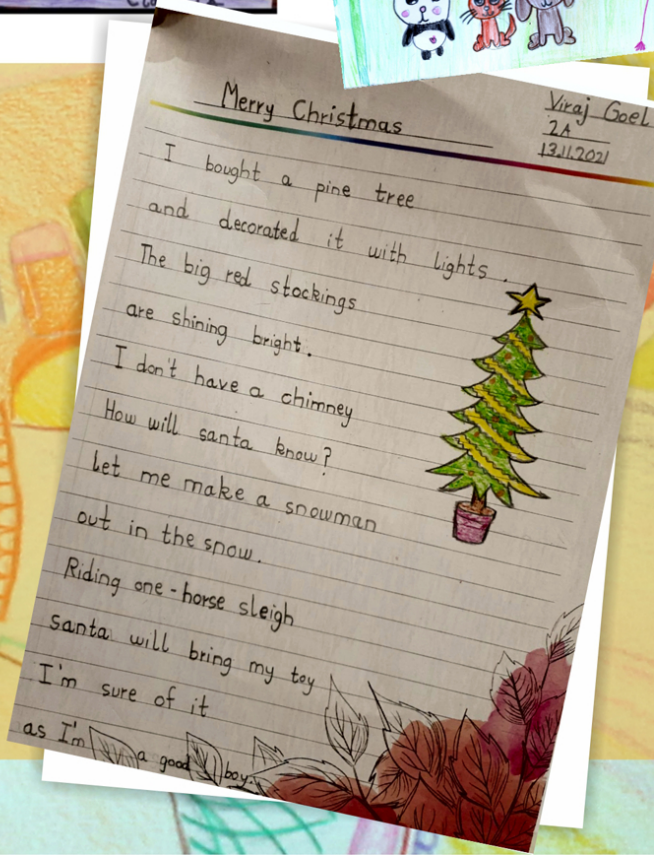 Merry Christmas
Viraj Goel
2A
13.11.2021
I bought a pine tree
and decorated it with lights.
The big red stockings
are shining bright.
I don't have a chimney
How will santa know?
let me make a snowman
out in the snow.
Riding one-horse sleigh
santa will bring my toy
I'm sure of it
as I'm a good boy.